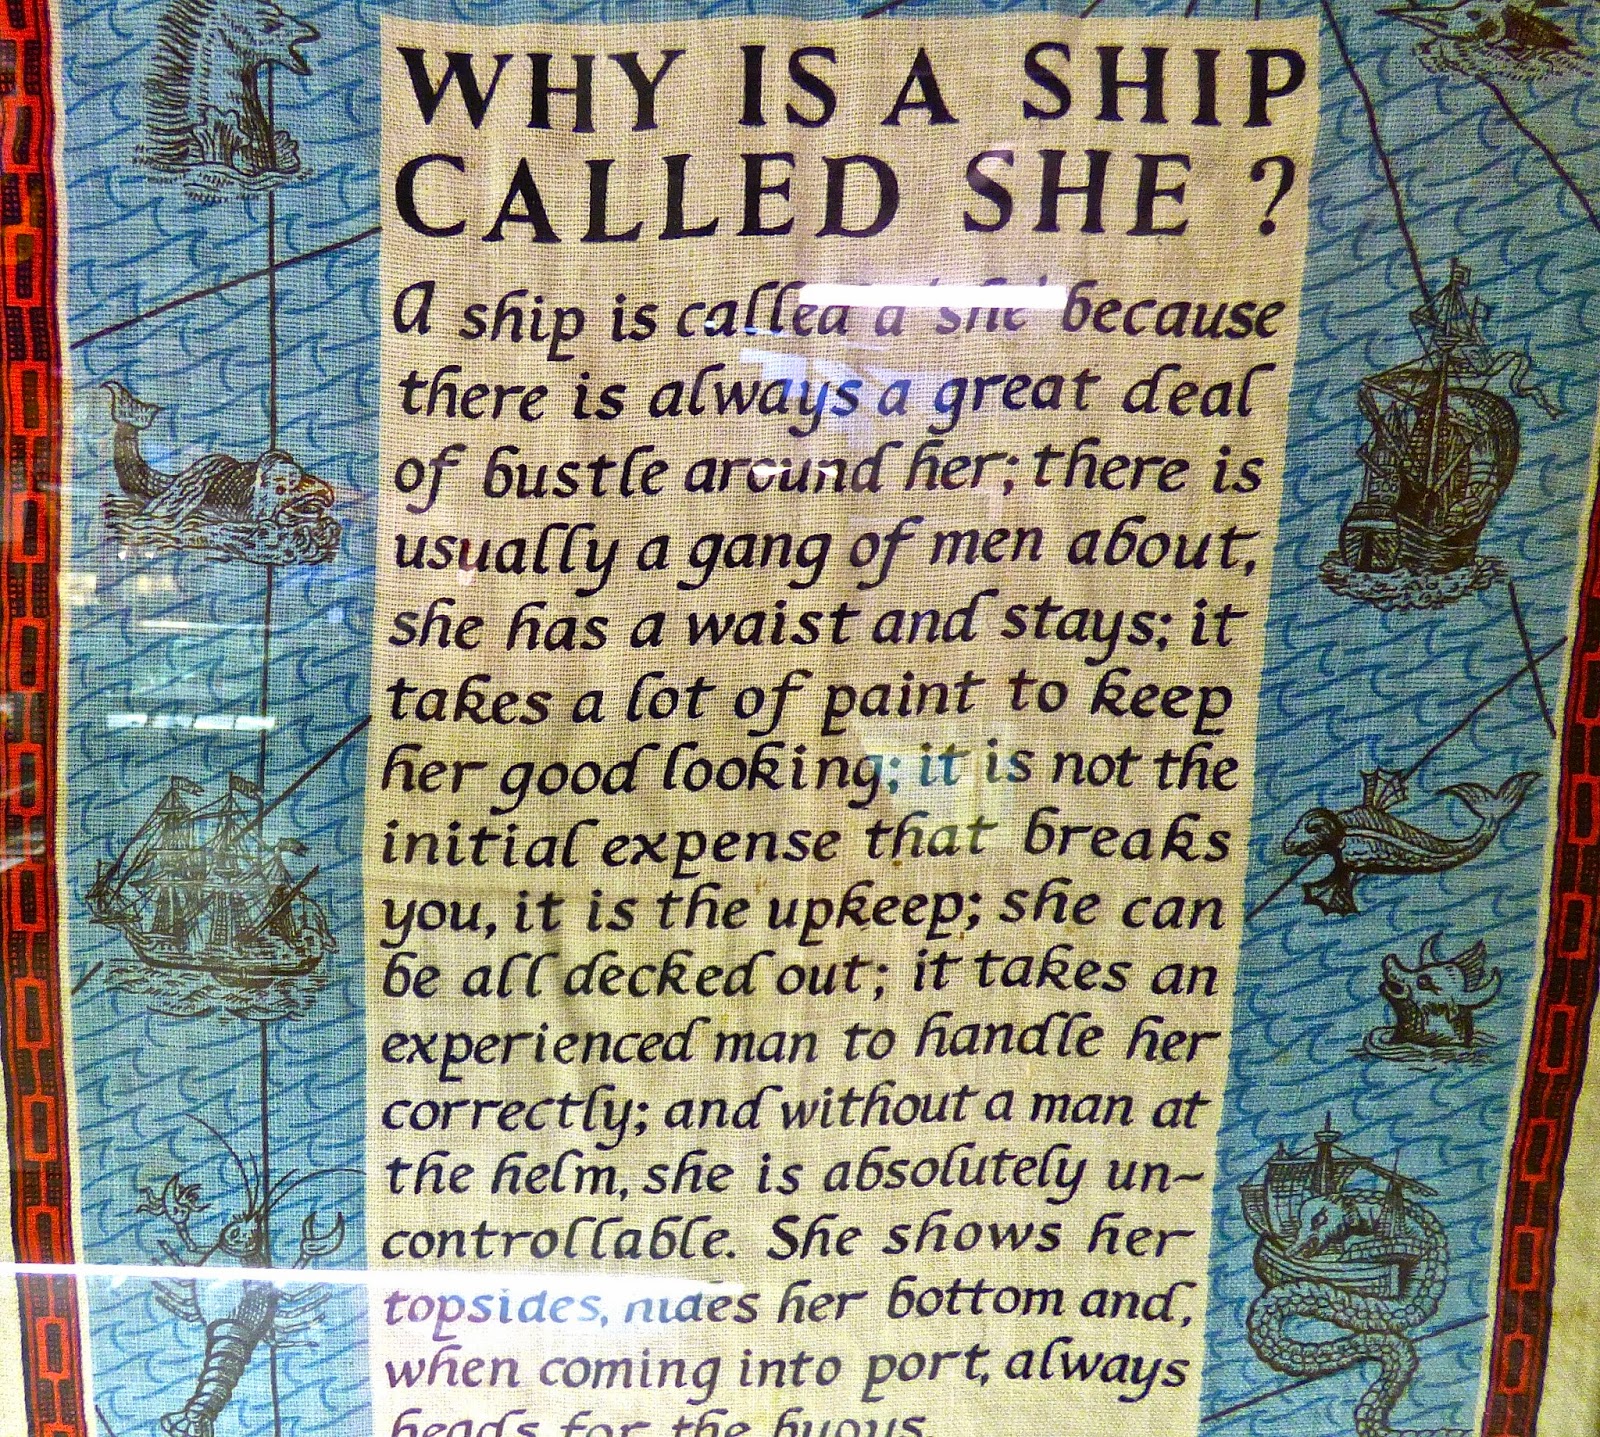 WHY IS A SHIP
CALLED SHE ?
A ship is called a 'she' because
there is always a great deal
of bustle around her; there is
usually a gang of men about,
she has a waist and stays; it
takes a lot of paint to keep
her good looking; it is not the
initial expense that breaks
you, it is the upkeep; she can
be all decked out; it takes an
experienced man to handle her
correctly; and without a man at
the helm, she is absolutely un-
controllable. She shows her
topsides, hides her bottom and,
when coming into port, always
heads for the buoys.